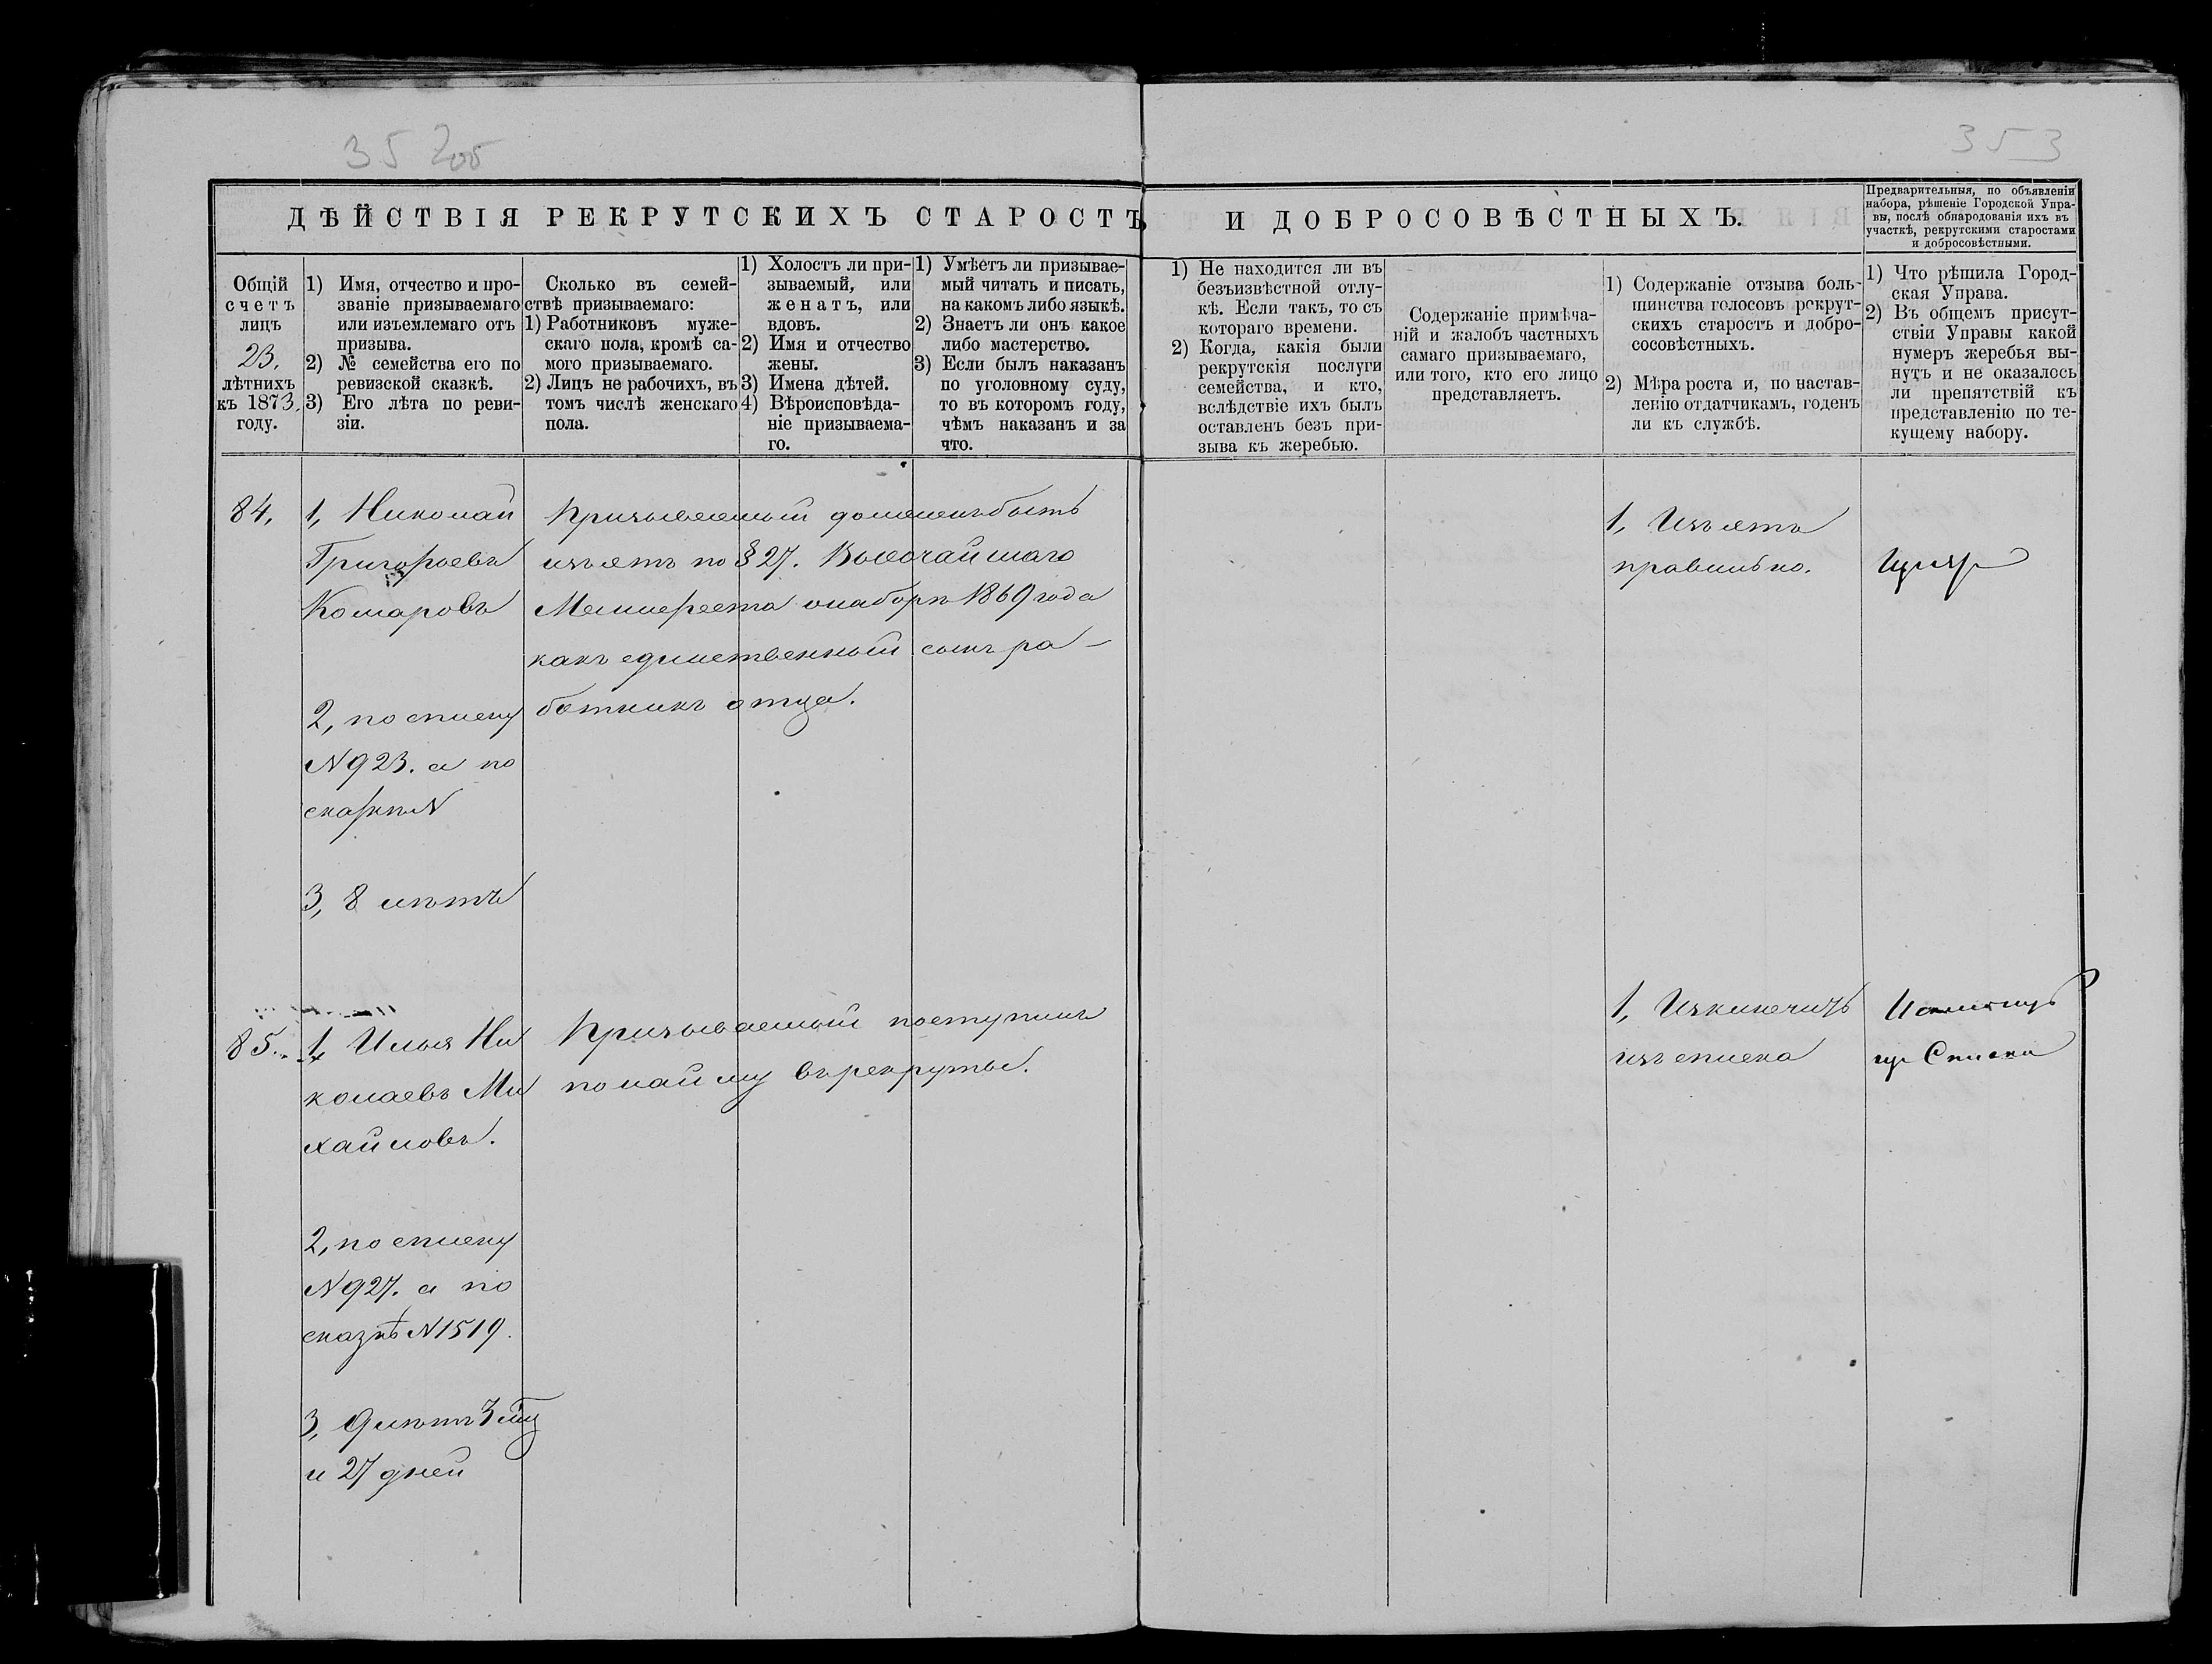 35 2об
353
ДѢЙСТВІЯ РЕКРУТСКИХЪ СТАРОСТЪ И ДОБРОСОВѢСТНЫХЪ.
Предварительныя, по объявленіи
набора, рѣшеніе Городской Упра-
вы, послѣ обнародованія ихъ въ
участкѣ, рекрутскими старостами
и добросовѣстными.
Общій
счетъ
лицъ
23.
лѣтнихъ
къ 1873.
году.
1) Имя, отчество и про-
званіе призываемаго
или изъемлемаго отъ
призыва.
2) № семейства его по
ревизской сказкѣ.
3) Его лѣта по реви-
зіи.
Сколько въ семей-
ствѣ призываемаго:
1) Работниковъ муже-
скаго пола, кромѣ са-
мого призываемаго.
2) Лицъ не рабочихъ, въ
томъ числѣ женскаго
пола.
1) Холостъ ли при-
зываемый, или
женатъ, или
вдовъ.
2) Имя и отчество
жены.
3) Имена дѣтей.
4) Вѣроисповѣда-
ніе призываема-
го.
1) Умѣетъ ли призывае-
мый читать и писать,
на какомъ либо языкѣ.
2) Знаетъ ли онъ какое
либо мастерство.
3) Если былъ наказанъ
по уголовному суду,
то въ которомъ году,
чѣмъ наказанъ и за
что.
1) Не находится ли въ
безъизвѣстной отлу-
кѣ. Если такъ, то съ
котораго времени.
2) Когда, какія были
рекрутскія послуги
семейства, и кто,
вслѣдствіе ихъ былъ
оставленъ безъ при-
зыва къ жеребью.
Содержаніе примѣча-
ній и жалобъ частныхъ
самаго призываемаго,
или того, кто его лицо
представляетъ.
1) Содержаніе отзыва боль-
шинства голосовъ рекрут-
скихъ старостъ и добро-
сосовѣстныхъ.
2) Мѣра роста и, по настав-
ленію отдатчикамъ, годенъ
ли къ службѣ.
1) Что рѣшила Город-
ская Управа.
2) Въ общемъ присут-
ствіи Управы какой
нумеръ жеребья вы-
нутъ и не оказалось
ли препятствій къ
представленію по те-
кущему набору.
84.
1, Николай
Григорьевъ
Комаровъ
2, по списку
N 923. а по
сказкѣ N
3, 8 лѣтъ
Призываемый долженъ быть
изъятъ по § 27. Высочайшаго
Манифеста о наборѣ 1869 года
какъ единственный сынъ ра-
ботникъ отца.
1, Изъятъ
правильно.
85.
1, Илья Ни
колаевъ Ми
хайловъ.
2, по списку
N 927. а по
сказкѣ N 1519.
3, 9 лѣтъ 3 мѣс
и 27 дней
Призываемый поступилъ
по найму въ рекруты.
1, Изключить
изъ списка
Списка